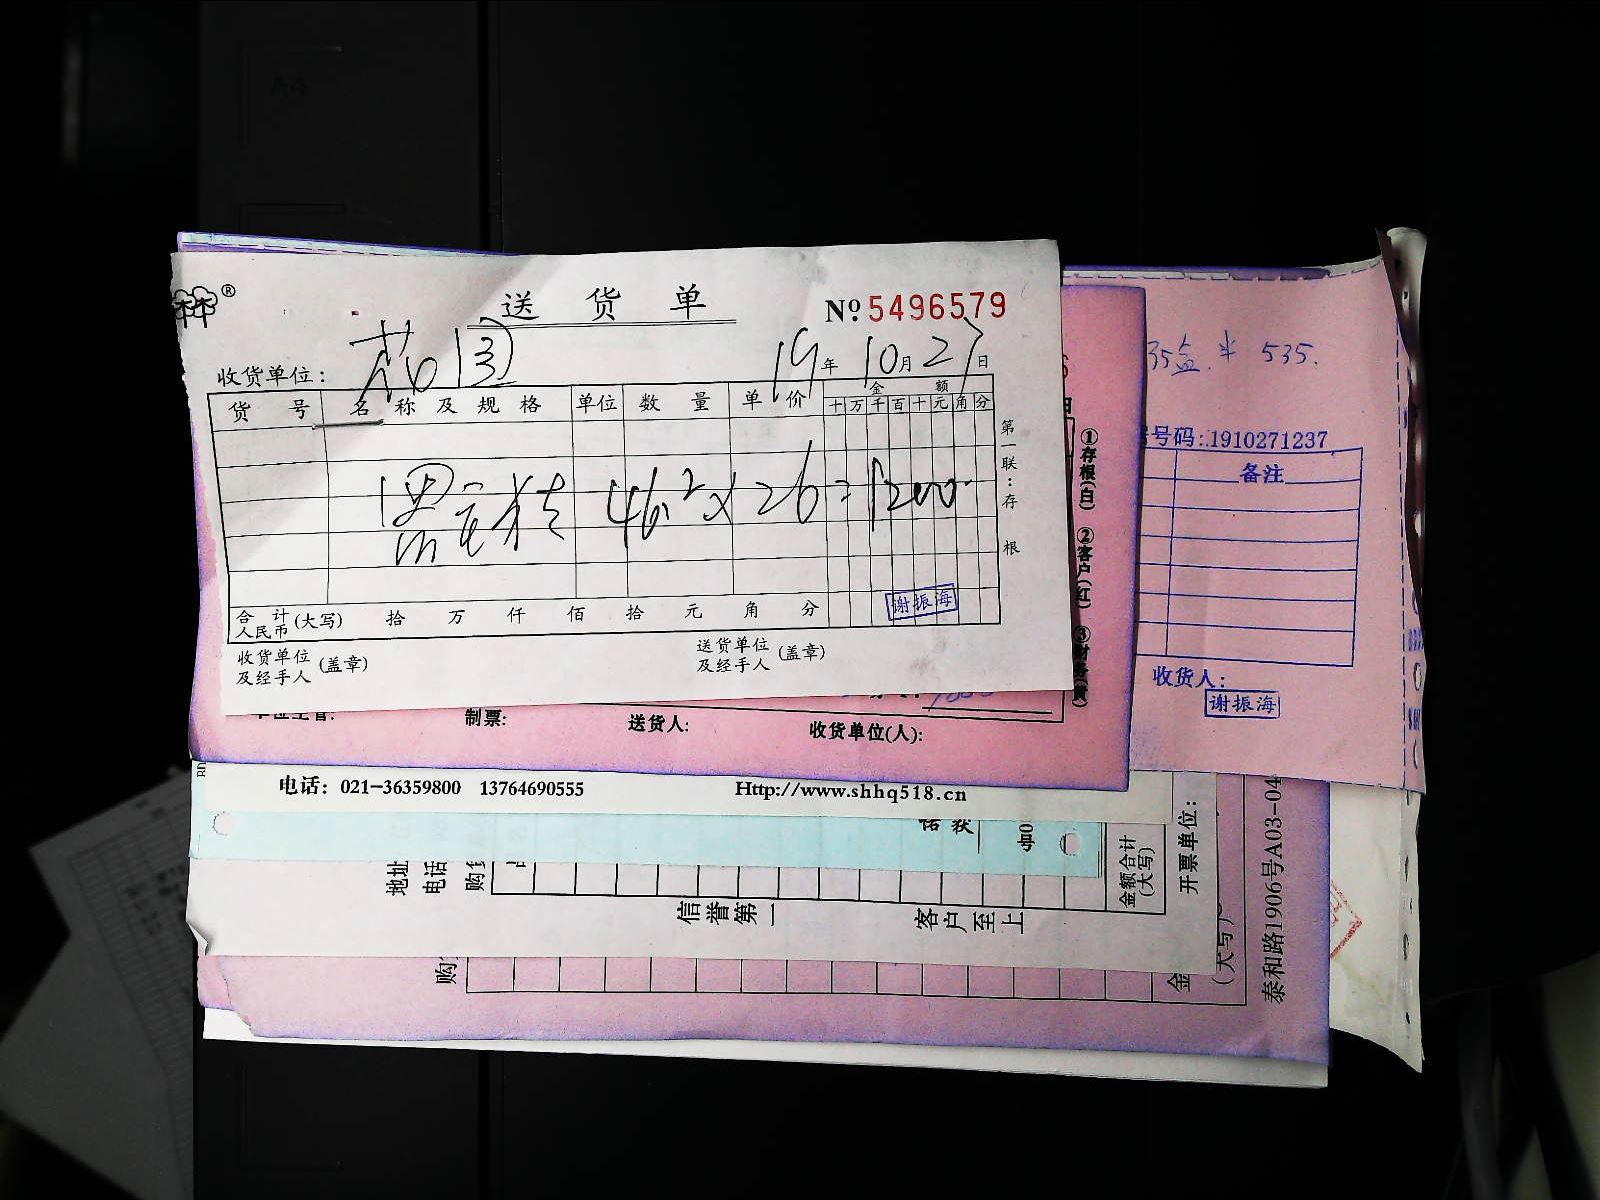 ®
送 货 单
№ 5496579
收货单位:
19 年 10 月 27 日
货 号 名 称 及 规 格 单位 数 量 单 价 金 额
十 万 千 百 十 元 角 分
46² × 26 = 1200
第一联:存根
合 计
人民币 (大写) 拾 万 仟 佰 拾 元 角 分
谢振海
收货单位
及经手人 (盖章)
送货单位
及经手人 (盖章)
①存根(白) ②客户(红) ③财务(黄)
制票: 送货人: 收货单位(人):
35盒 半 535.
号码:1910271237
备注
收货人:
谢振海
电话: 021-36359800 13764690555
Http://www.shhq518.cn
地址
电话
信誉第一
客户至上
金额合计
(大写)
开票单位:
(大写)
泰和路1906号A03-04